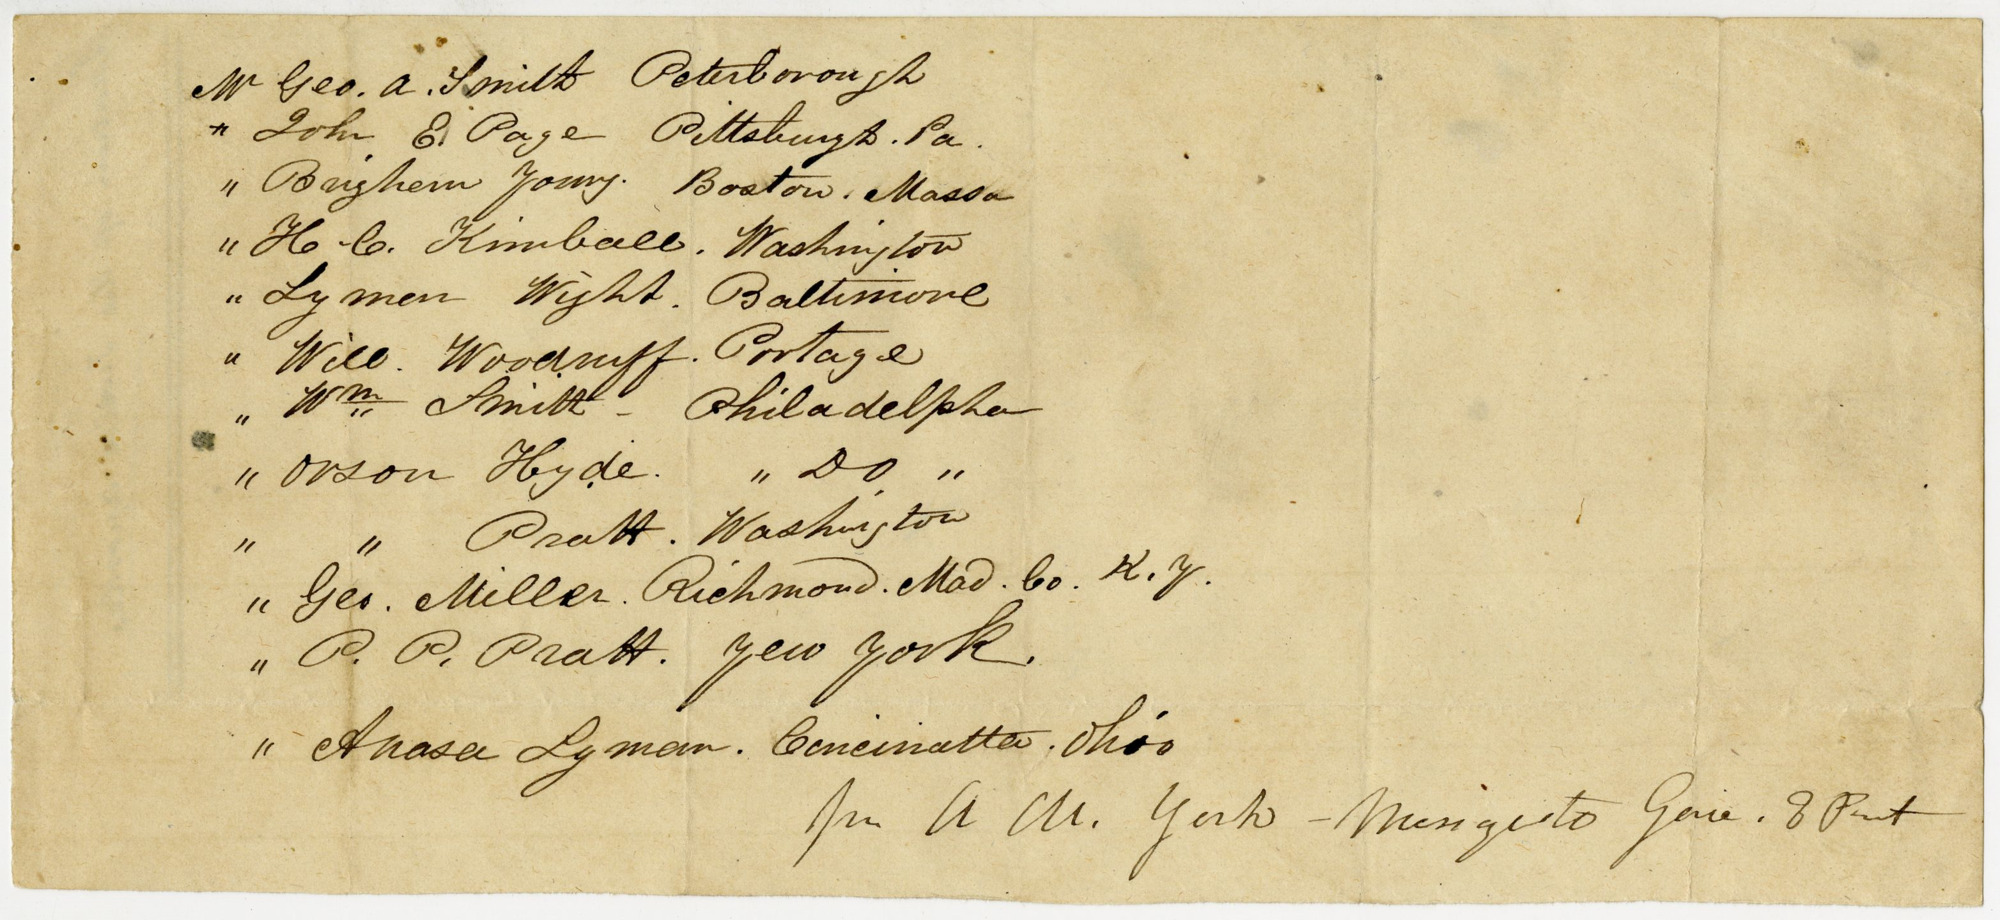 Mr Geo. A. Smith Peterborough
" John E. Page Pittsburgh. Pa.
" Brighem Young. Boston. Massa
" H. C. Kimball. Washington
" Lymen Wight. Baltimore
" Will. Woodruff. Portage
" Wm Smith - Philadelpha
" Orson Hyde. " Do "
" " Pratt. Washington
" Geo. Miller. Richmond. Mad. Co. K.Y.
" P. P. Pratt. New York.
" Amasa Lyman. Cincinatta. Ohio
A M. York -